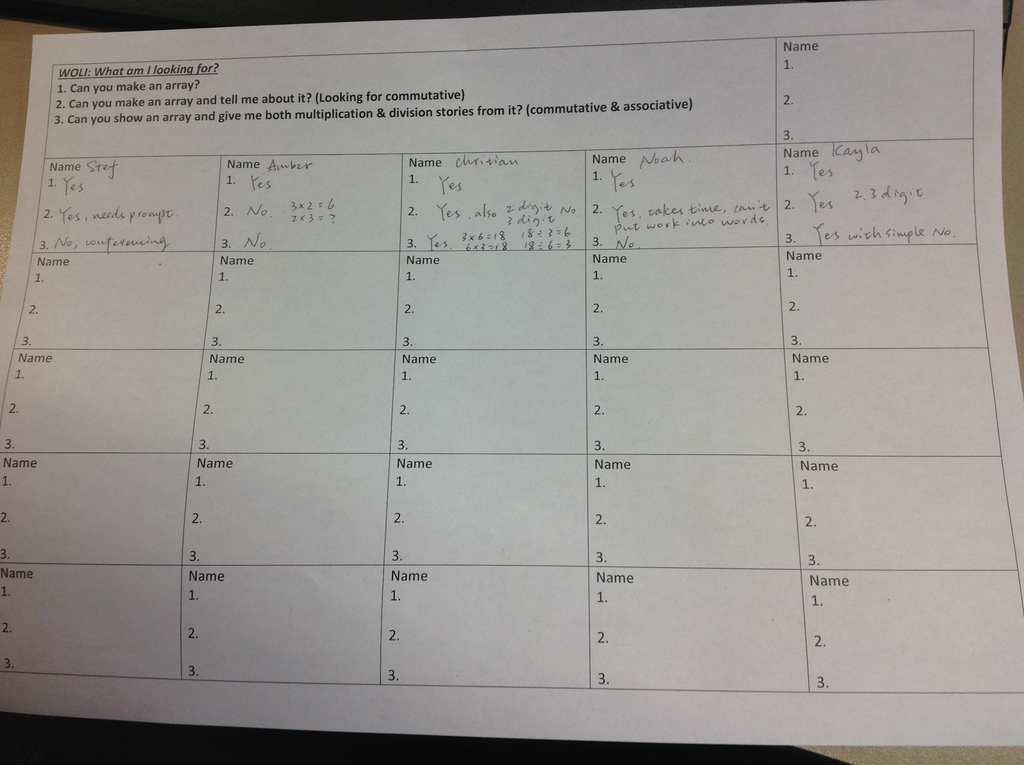 WOLI: What am I looking for?
1. Can you make an array?
2. Can you make an array and tell me about it? (Looking for commutative)
3. Can you show an array and give me both multiplication & division stories from it? (commutative & associative)
Name
1.
2.
3.
Name Stef
1. Yes
2. Yes, needs prompt.
3. No, conferencing
Name Amber
1. Yes
2. No. 3x2=6
2x3=?
3. No.
Name Christian
1. Yes
2. Yes. also 2 digit No.
3 digit
3. Yes. 3x6=18 18÷3=6
6x3=18 18÷6=3
Name Noah.
1. Yes
2. Yes, takes time, can't
put work into words.
3. No.
Name Kayla
1. Yes
2. Yes 2.3 digit
3. Yes with simple No.
Name
1.
2.
3.
Name
1.
2.
3.
Name
1.
2.
3.
Name
1.
2.
3.
Name
1.
2.
3.
Name
1.
2.
3.
Name
1.
2.
3.
Name
1.
2.
3.
Name
1.
2.
3.
Name
1.
2.
3.
Name
1.
2.
3.
Name
1.
2.
3.
Name
1.
2.
3.
Name
1.
2.
3.
Name
1.
2.
3.
Name
1.
2.
3.
Name
1.
2.
3.
Name
1.
2.
3.
Name
1.
2.
3.
Name
1.
2.
3.